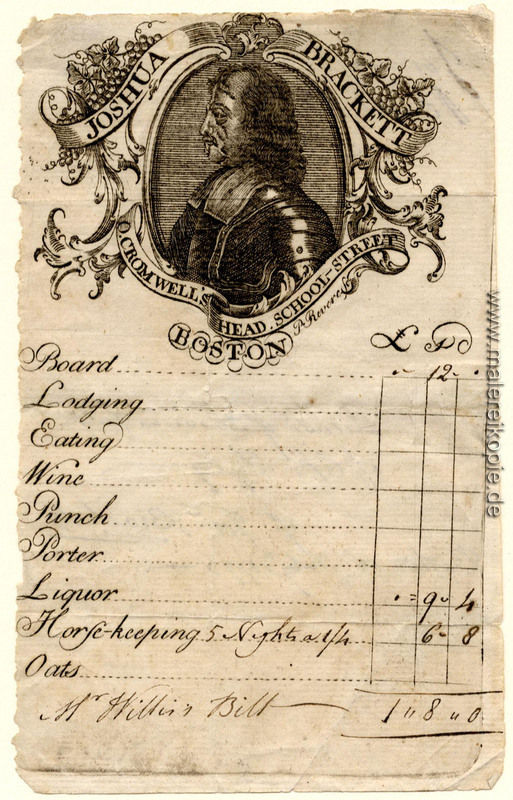 JOSHUA BRACKETT
O. CROMWELL'S HEAD. SCHOOL-STREET
P. Revere
BOSTON
£ S D
Board 12
Lodging
Eating
Wine
Punch
Porter
Liquor 9 4
Horse-keeping 5 Nights a 1/4 6 8
Oats
Mr Willis Bill 1 " 8 " 0
www.malereikopie.de